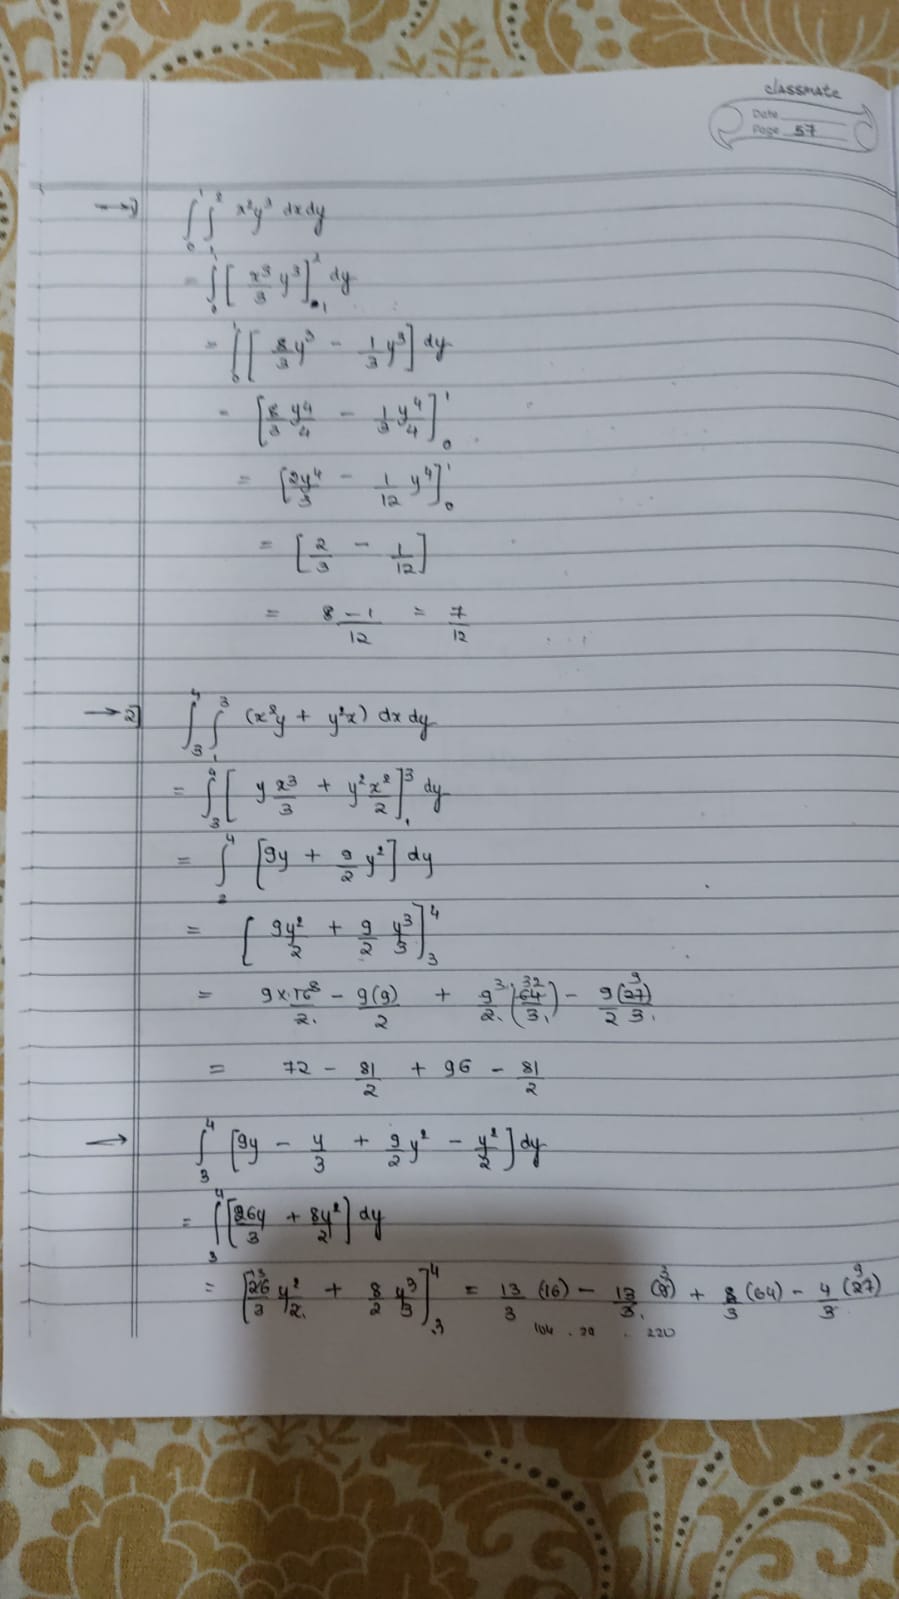 classmate
Date
Page 57
→ 1) ∫₀¹ ∫₁² x²y³ dx dy
= ∫₀¹ [ x³/3 y³ ]₁² dy
= ∫₀¹ [ 8/3 y³ - 1/3 y³ ] dy
= [ 8/3 y⁴/4 - 1/3 y⁴/4 ]₀¹
= [ 2y⁴/3 - 1/12 y⁴ ]₀¹
= [ 2/3 - 1/12 ]
= 8-1/12 = 7/12
→ 2] ∫₃⁴ ∫₁³ (x²y + y²x) dx dy
= ∫₃⁴ [ y x³/3 + y² x²/2 ]₁³ dy
= ∫₃⁴ [9y + 9/2 y²] dy
= [ 9y²/2 + 9/2 y³/3 ]₃⁴
= 9×16 8/2 - 9(9)/2 + 9 3/2 (64 32/3) - 9/2 (27 9)/3
= 72 - 81/2 + 96 - 81/2
→ ∫₃⁴ [9y - y/3 + 9/2 y² - y²/2] dy
= ∫₃⁴ [26y/3 + 8y²/2] dy
= [26 13/3 y²/2 + 8/2 y³/3]₃⁴ = 13/3 (16) - 13/3 (9 3) + 8/3 (64) - 4/3 (27 9)
220